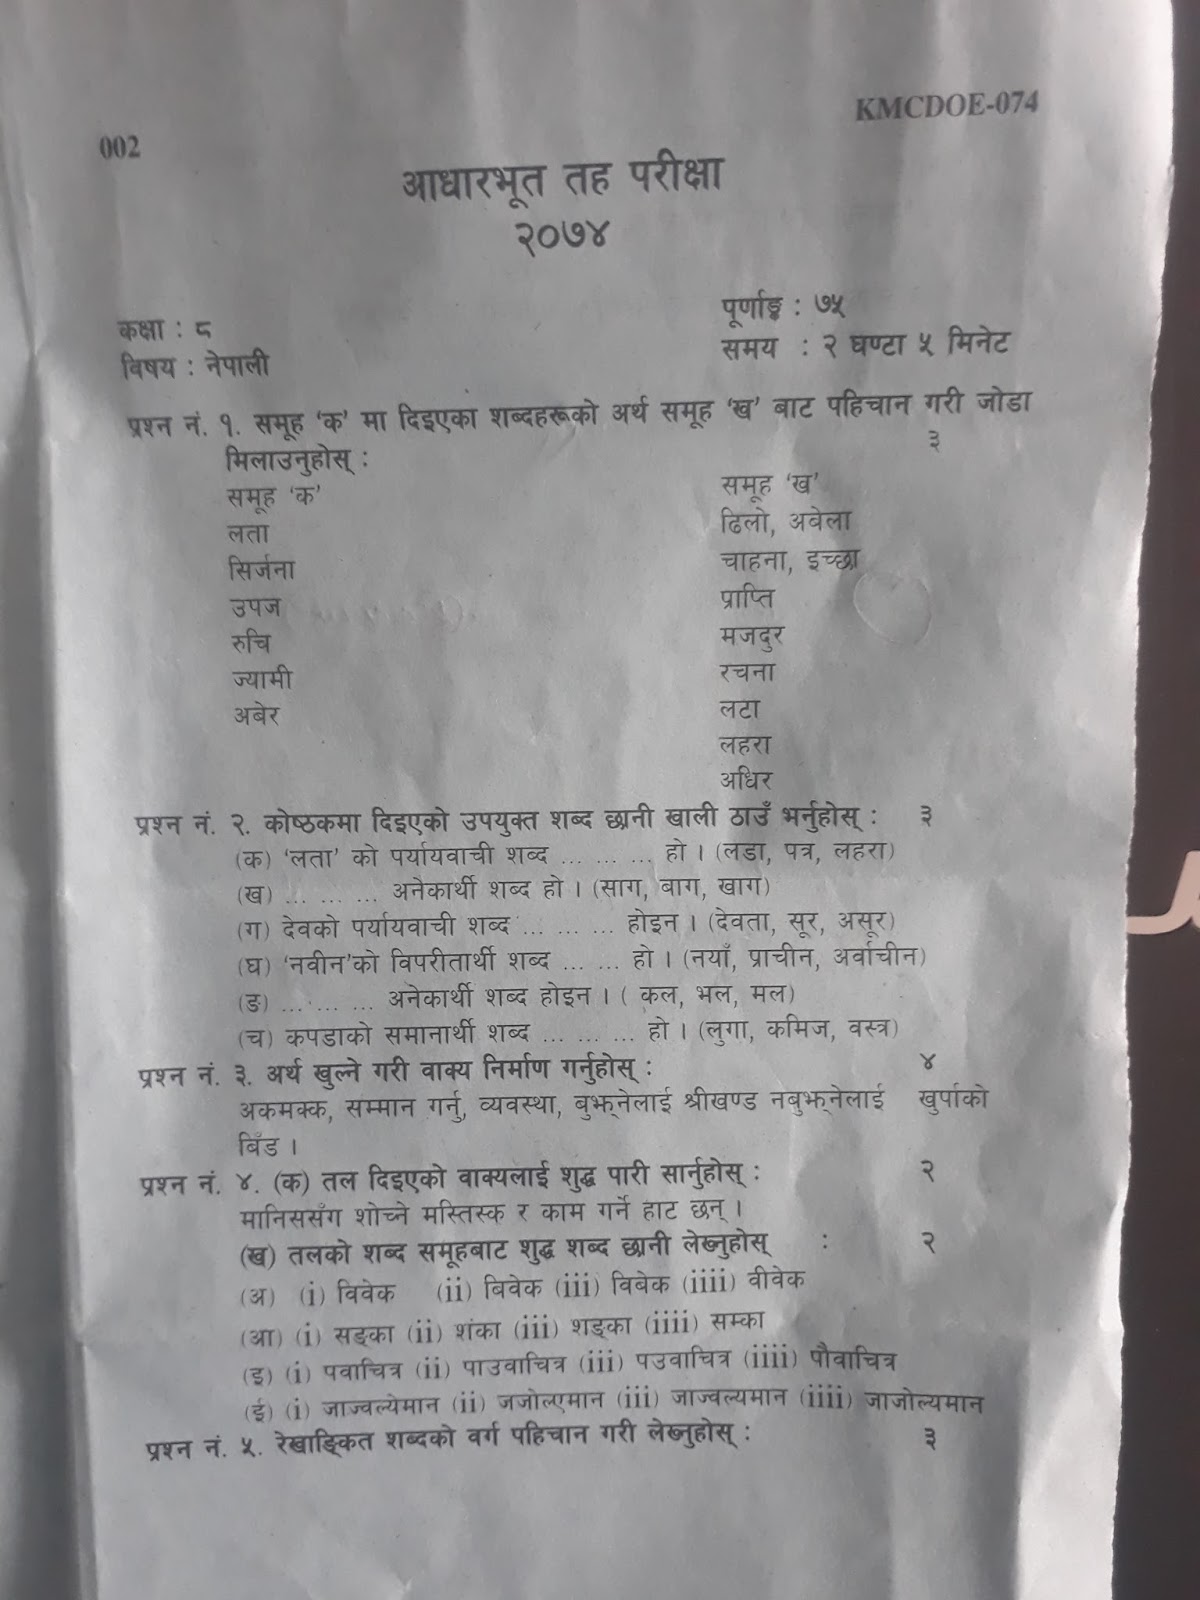 KMCDOE-074
002
आधारभूत तह परीक्षा
२०७४
कक्षा : ८
पूर्णाङ्क : ७५
विषय : नेपाली
समय : २ घण्टा ५ मिनेट
प्रश्न नं. १. समूह ‘क’ मा दिइएका शब्दहरूको अर्थ समूह ‘ख’ बाट पहिचान गरी जोडा
मिलाउनुहोस् : ३
समूह ‘क’ समूह ‘ख’
लता ढिलो, अबेला
सिर्जना चाहना, इच्छा
उपज प्राप्ति
रुचि मजदुर
ज्यामी रचना
अबेर लटा
लहरा
अधिर
प्रश्न नं. २. कोष्ठकमा दिइएको उपयुक्त शब्द छानी खाली ठाउँ भर्नुहोस् : ३
(क) ‘लता’ को पर्यायवाची शब्द ... ... ... हो । (लडा, पत्र, लहरा)
(ख) ... ... ... अनेकार्थी शब्द हो । (साग, बाग, खाग)
(ग) देवको पर्यायवाची शब्द ... ... ... होइन । (देवता, सूर, असूर)
(घ) ‘नवीन’को विपरीतार्थी शब्द ... ... हो । (नयाँ, प्राचीन, अर्वाचीन)
(ङ) ... ... ... अनेकार्थी शब्द होइन । ( कल, भल, मल)
(च) कपडाको समानार्थी शब्द ... ... ... हो । (लुगा, कमिज, वस्त्र)
प्रश्न नं. ३. अर्थ खुल्ने गरी वाक्य निर्माण गर्नुहोस् : ४
अकमक्क, सम्मान गर्नु, व्यवस्था, बुझ्नेलाई श्रीखण्ड नबुझ्नेलाई खुर्पाको
बिँड ।
प्रश्न नं. ४. (क) तल दिइएको वाक्यलाई शुद्ध पारी सार्नुहोस् : २
मानिससँग शोच्ने मस्तिस्क र काम गर्ने हाट छन् ।
(ख) तलको शब्द समूहबाट शुद्ध शब्द छानी लेख्नुहोस् : २
(अ) (i) विवेक (ii) बिवेक (iii) विबेक (iiii) वीवेक
(आ) (i) सङ्का (ii) शंका (iii) शङ्का (iiii) सम्का
(इ) (i) पवाचित्र (ii) पाउवाचित्र (iii) पउवाचित्र (iiii) पौवाचित्र
(ई) (i) जाज्वल्येमान (ii) जजोल्एमान (iii) जाज्वल्यमान (iiii) जाजोल्यमान
प्रश्न नं. ५. रेखाङ्कित शब्दको वर्ग पहिचान गरी लेख्नुहोस् : ३